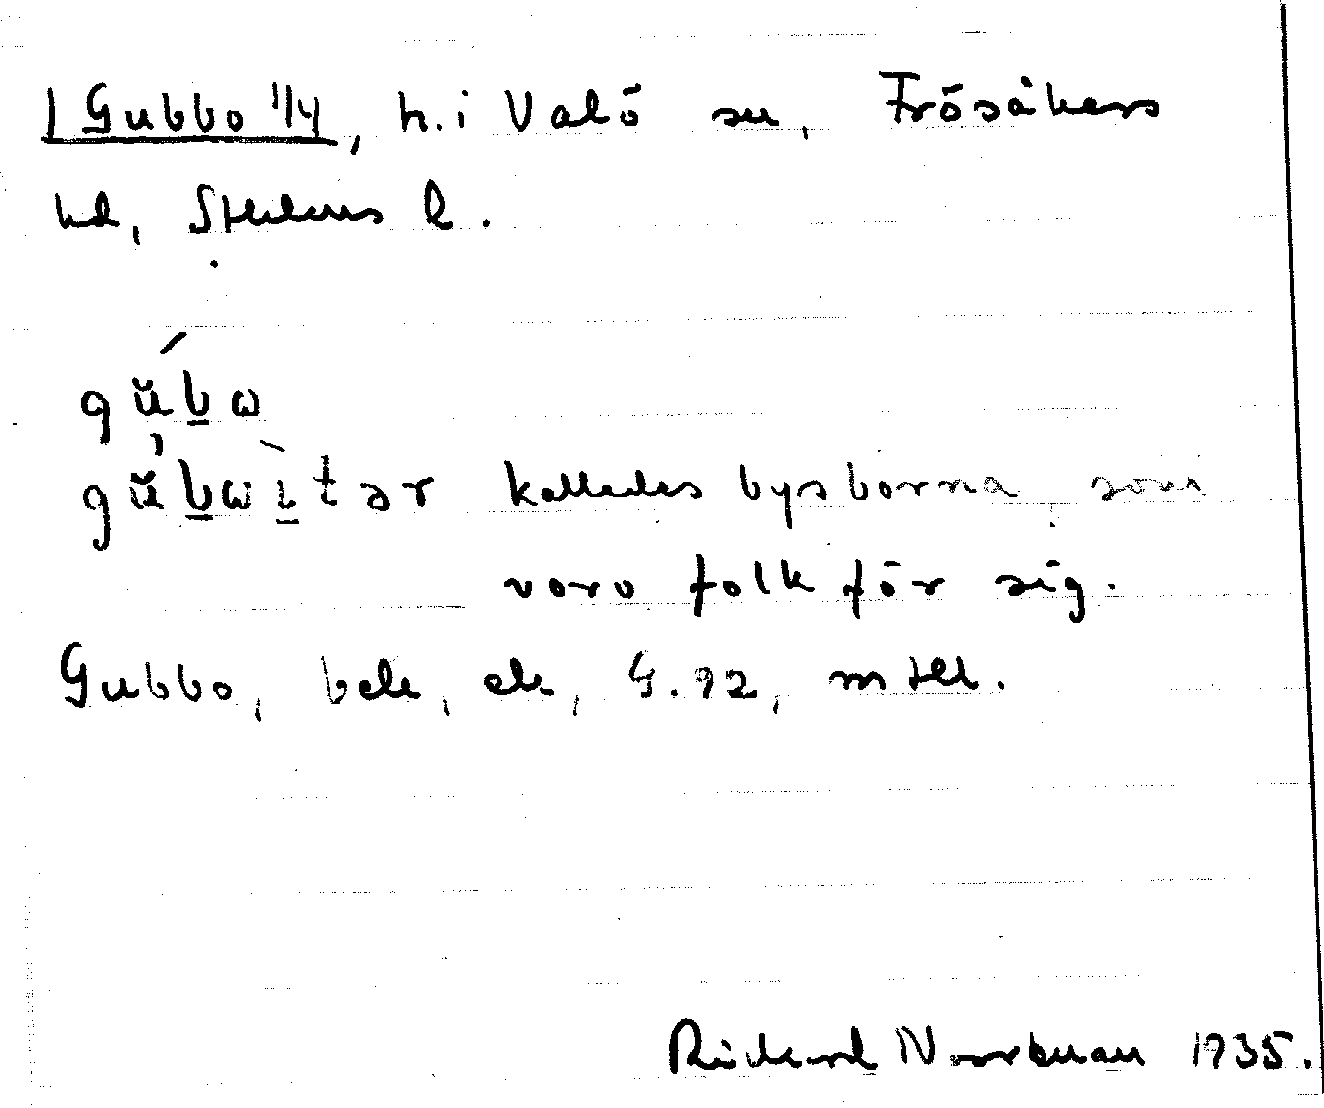 Gubbo 1/4, h. i Valö sn, Frösåkers
hd, Sthlms l.
gŭ́bω
gŭ̀bωìtər kallades bysborna som
voro folk för sig.
Gubbo, bek, ek, G.92, mtll.
Rickard Norrbman 1935.